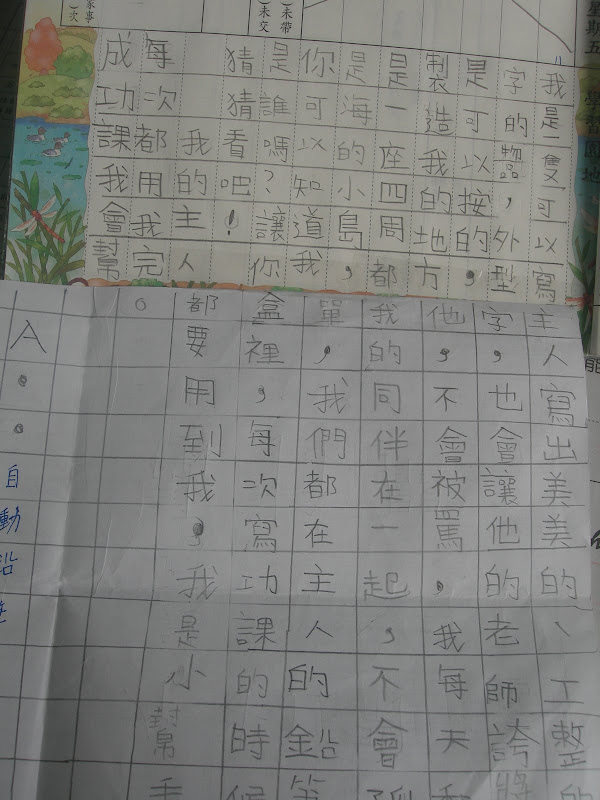 星期五
學習園地
未帶
未交
家事
次
我是隻可以寫
字的蠶，外型
是可以按的，
製造我的地方
是一座四周都
是海的小島，
你可以知道我
是誰嗎？讓你
猜猜看吧！
我的主人
每次都用我完
成功課我會幫
主人寫出美美的、工整的
字，也會讓他的老師誇獎
他，不會被罵，我每天和
我的同伴在一起，不會孤
單，我們都在主人的鉛筆
盒裡，每次寫功課的時候
都要用到我，我是小幫手
。
A。。自動鉛